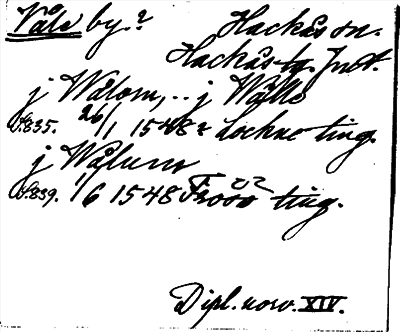 Våle by.? Hackås sn.
Hackås tg. Jmt.
j Wålom, .. j Wålle
S. 835. 26/1 1548 Lockne ting.
j Wålum
S. 839. 1/6 1548 Frösö ting.
Dipl. norv. XIV.